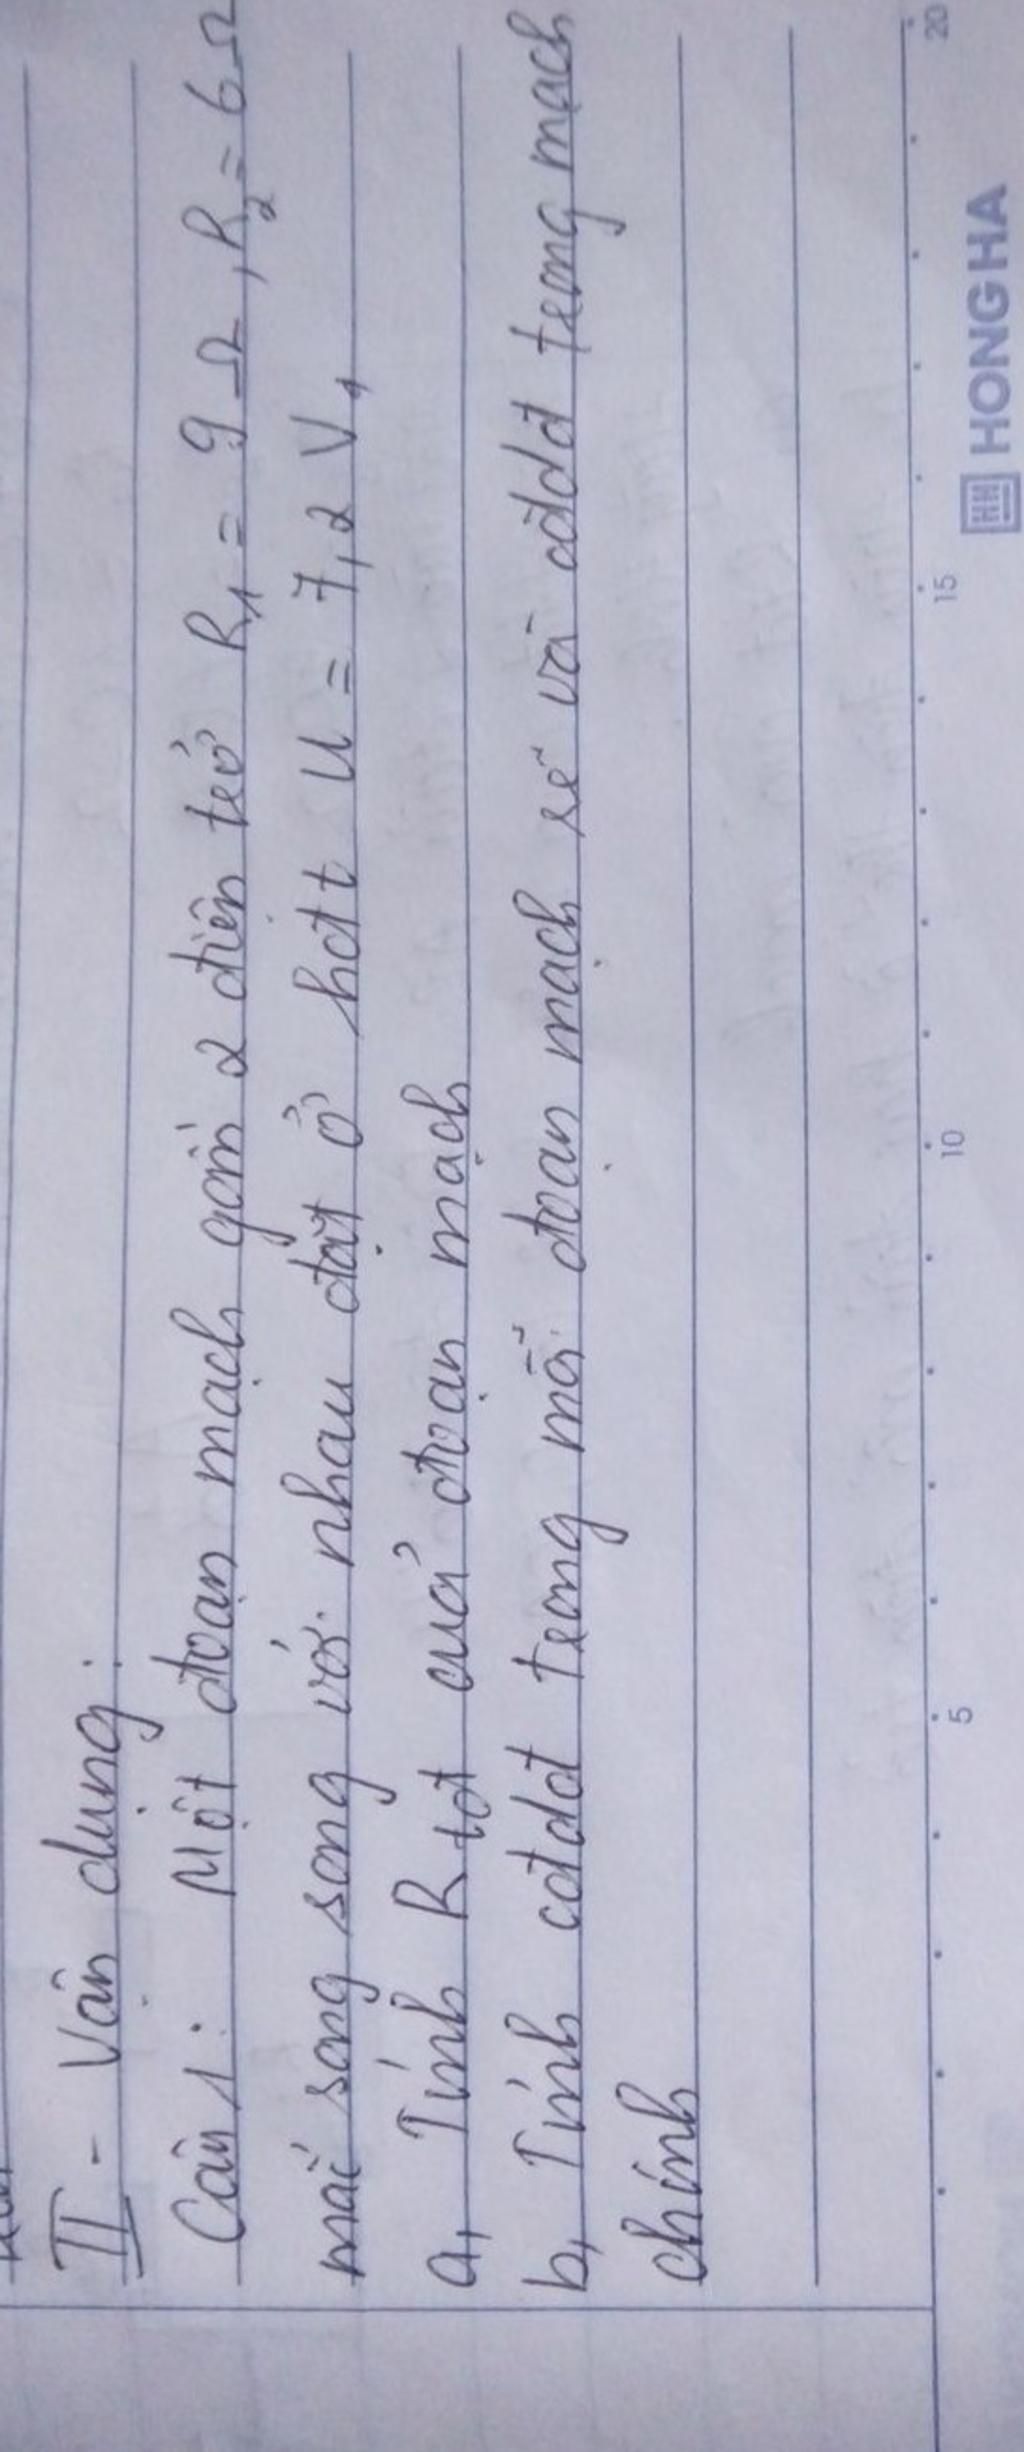 II - Vận dụng:
Câu 1: Một đoạn mạch gồm 2 điện trở R1 = 9 Ω, R2 = 6 Ω
mắc song song với nhau đặt ở hđt U = 7,2 V,
a, Tính Rtđ của đoạn mạch
b, Tính cđdđ trong mỗi đoạn mạch rẽ và cđdđ trong mạch
chính
5 10 15 20
HH HONG HA